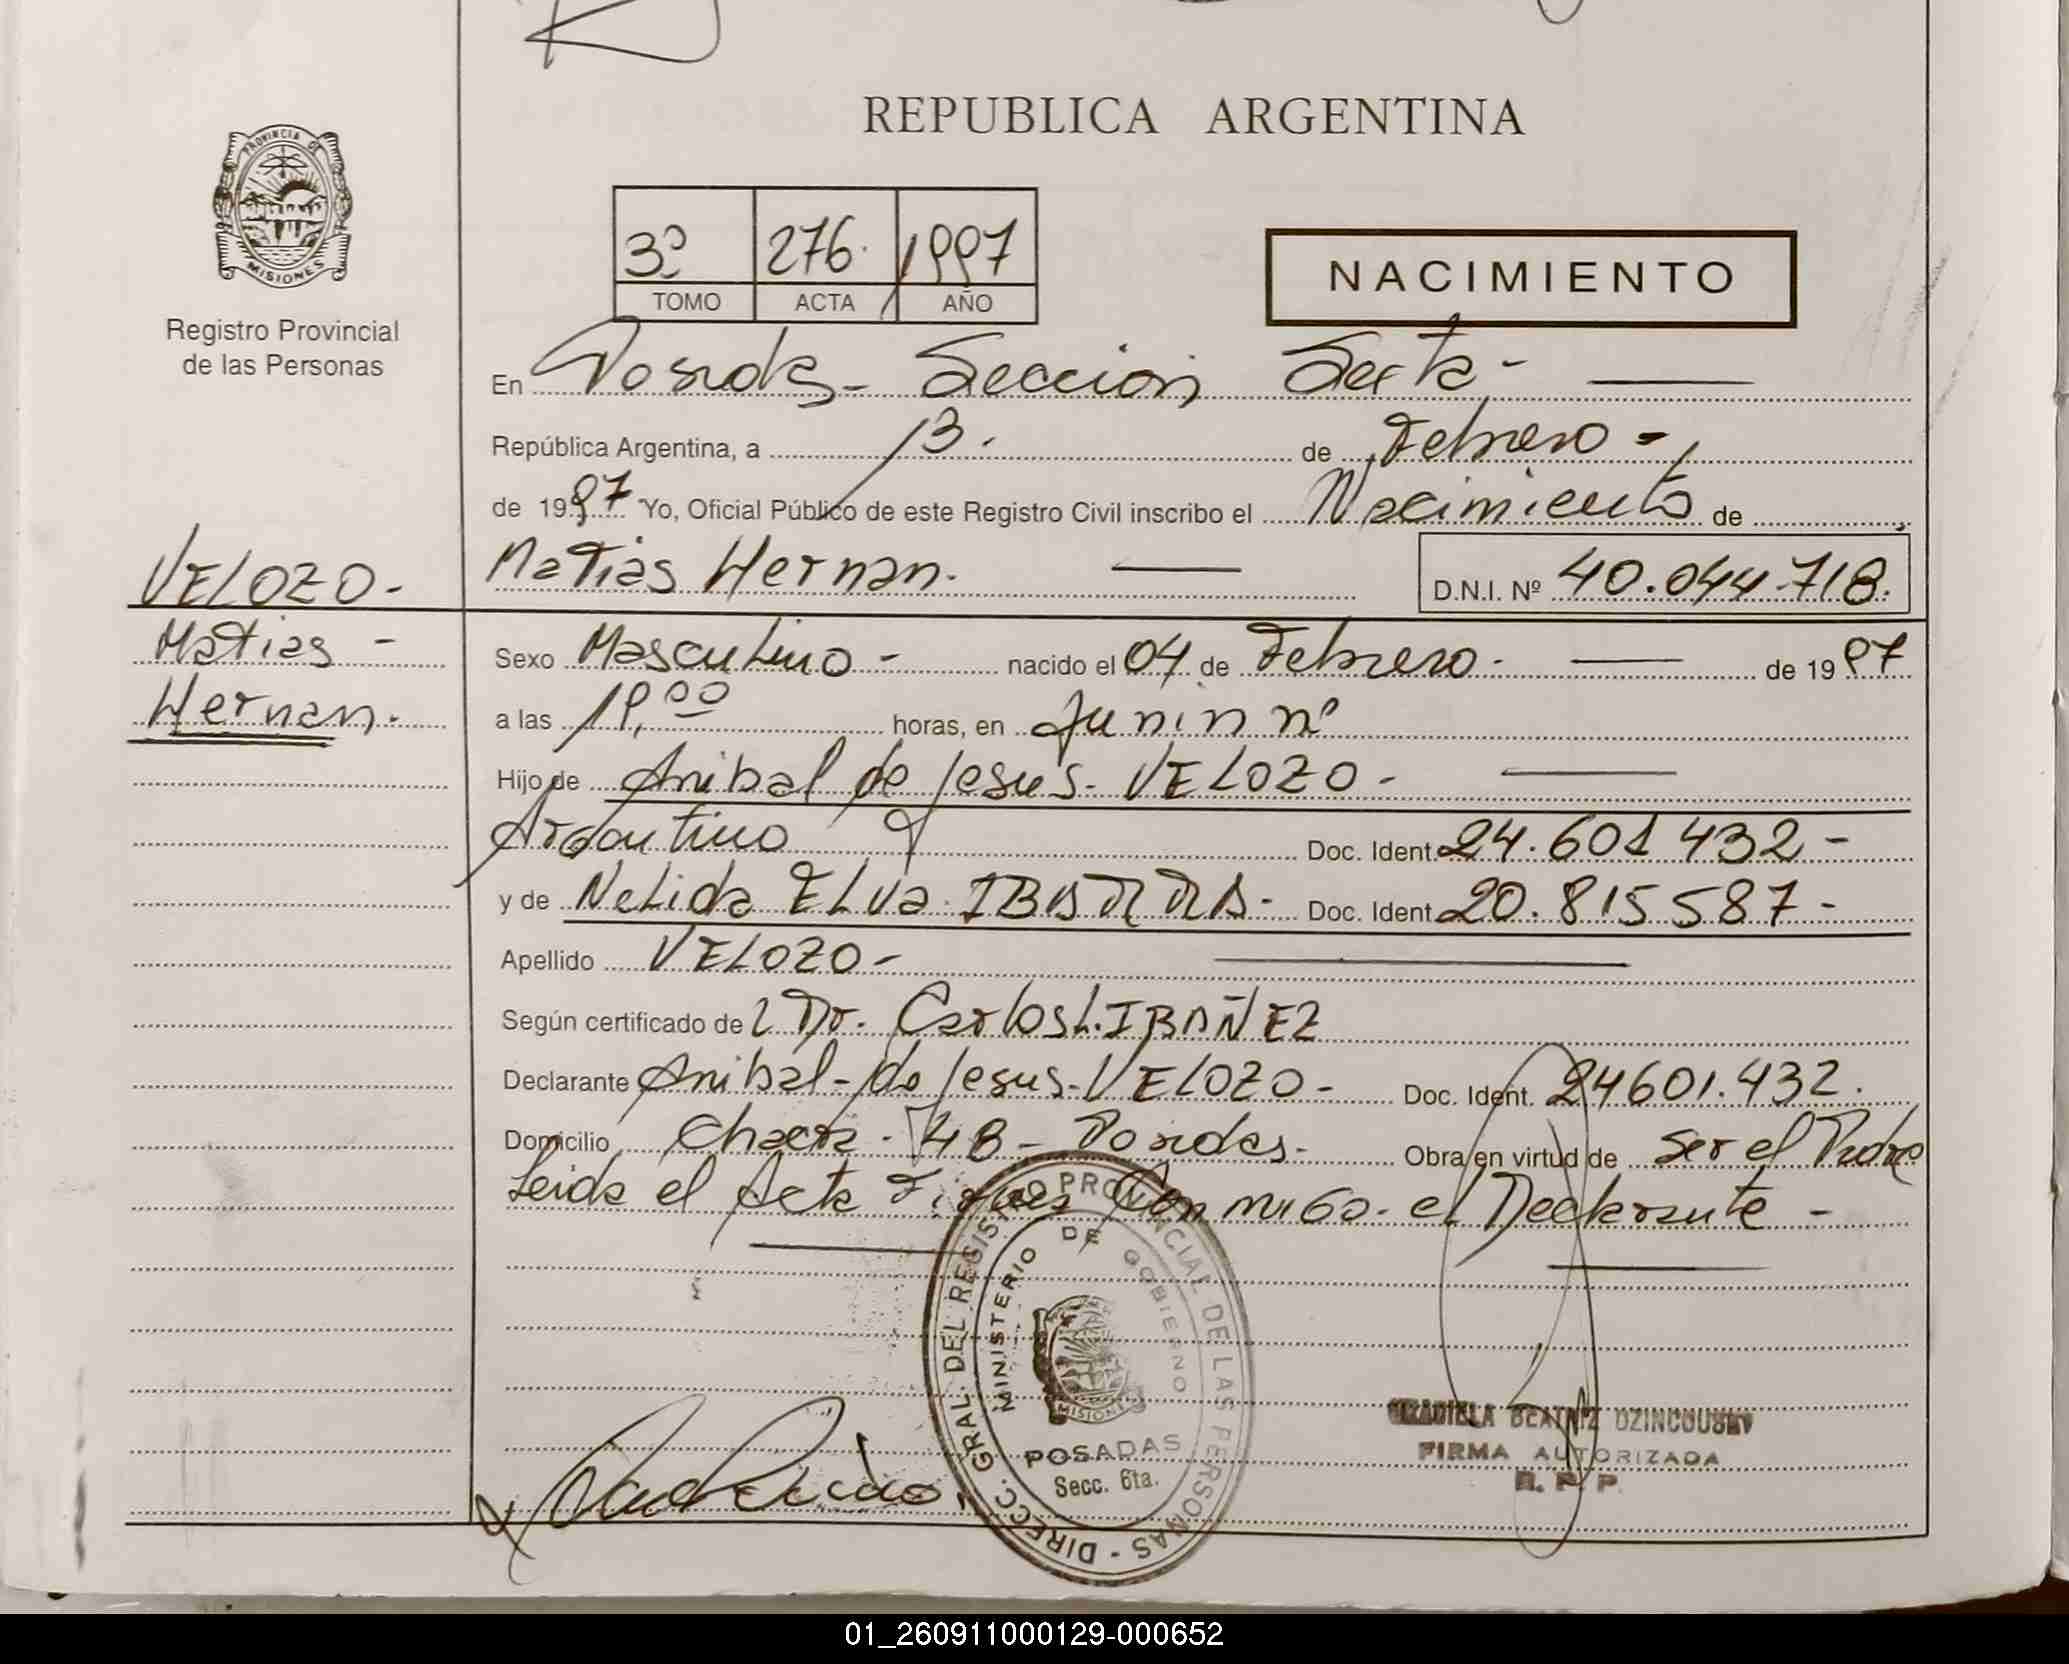 REPUBLICA ARGENTINA
PROVINCIA DE
MISIONES
Registro Provincial
de las Personas
3º 276. 1997
TOMO ACTA AÑO
NACIMIENTO
En Posadas - Seccion Sexta -
República Argentina, a 13. de Febrero -
de 1997 Yo, Oficial Público de este Registro Civil inscribo el Nacimiento de
Matias Hernan. D.N.I. Nº 40.044.718.
VELOZO -
Matias -
Hernan.
Sexo Masculino - nacido el 04 de Febrero. de 1997
a las 19,00 horas, en Junin nº
Hijo de Anibal de Jesus. VELOZO -
Argentino Doc. Ident. 24.601 432 -
y de Nelida ELva. IBARRA - Doc. Ident. 20.815 587 -
Apellido VELOZO -
Según certificado de Dr. Carlos L. IBAÑEZ
Declarante Anibal - de Jesus - VELOZO - Doc. Ident. 24601.432.
Domicilio Chacra - 148 - Posadas. Obra en virtud de ser el Padre
Leida el Acta Firma Conmigo. el Declarante -
DIRECC. GRAL. DEL REGISTRO PROVINCIAL DE LAS PERSONAS -
MINISTERIO DE GOBIERNO
MISIONES
POSADAS
Secc. 6ta.
GRACIELA BEATRIZ DZINCOUSKY
FIRMA AUTORIZADA
R. P. P.
01_260911000129-000652